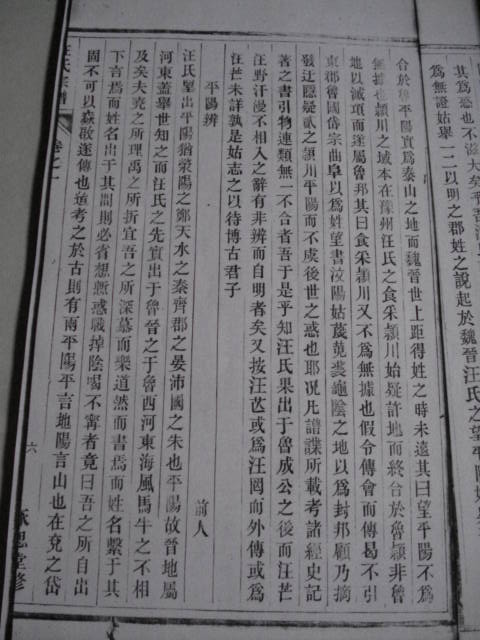 其爲恐也不滋大矣乎
爲無證姑舉一二以明之郡姓之說起於魏晉汪氏之望平陽
合於魯平陽實爲泰山之地而魏晉世上距得姓之時未遠其曰望平陽不爲
無據也潁川之域本在豫州汪氏之食采潁川始疑許地而終合於魯潁非魯
地以滅項而遂屬魯邦其曰食采潁川又不爲無據也假令傳會而傳曷不引
東郡魯國岱宗曲阜以爲姓望書汶陽姑蔑莬裘龜陰之地以爲封邦顧乃摘
發迂隱疑貳之潁川平陽而不虞後世之惑也耶况凡譜諜所載考諸經史記
著之書引物連類無一不合者吾于是乎知汪氏果出于魯成公之後而汪芒
汪野汗漫不相入之辭有非辨而自明者矣又按汪芒或爲汪罔而外傳或爲
汪芒未詳孰是姑志之以待博古君子
平陽辨
前人
汪氏望出平陽猶滎陽之鄭天水之秦齊郡之晏沛國之朱也平陽故晉地屬
河東蓋舉世知之而汪氏之先實出于魯晉之于魯西河東海風馬牛之不相
及矣夫堯之所理禹之所折宜吾之所深慕而樂道然而書焉而姓名繫于其
下言焉而姓名出于其間則必省想慙惑戰掉陰喝不寗者竟曰吾之所自出
固不可以焱散遂傳也遒考之於古則有兩平陽平言地陽言山也在兗之岱
汪氏宗譜
卷之一
六
承思堂修